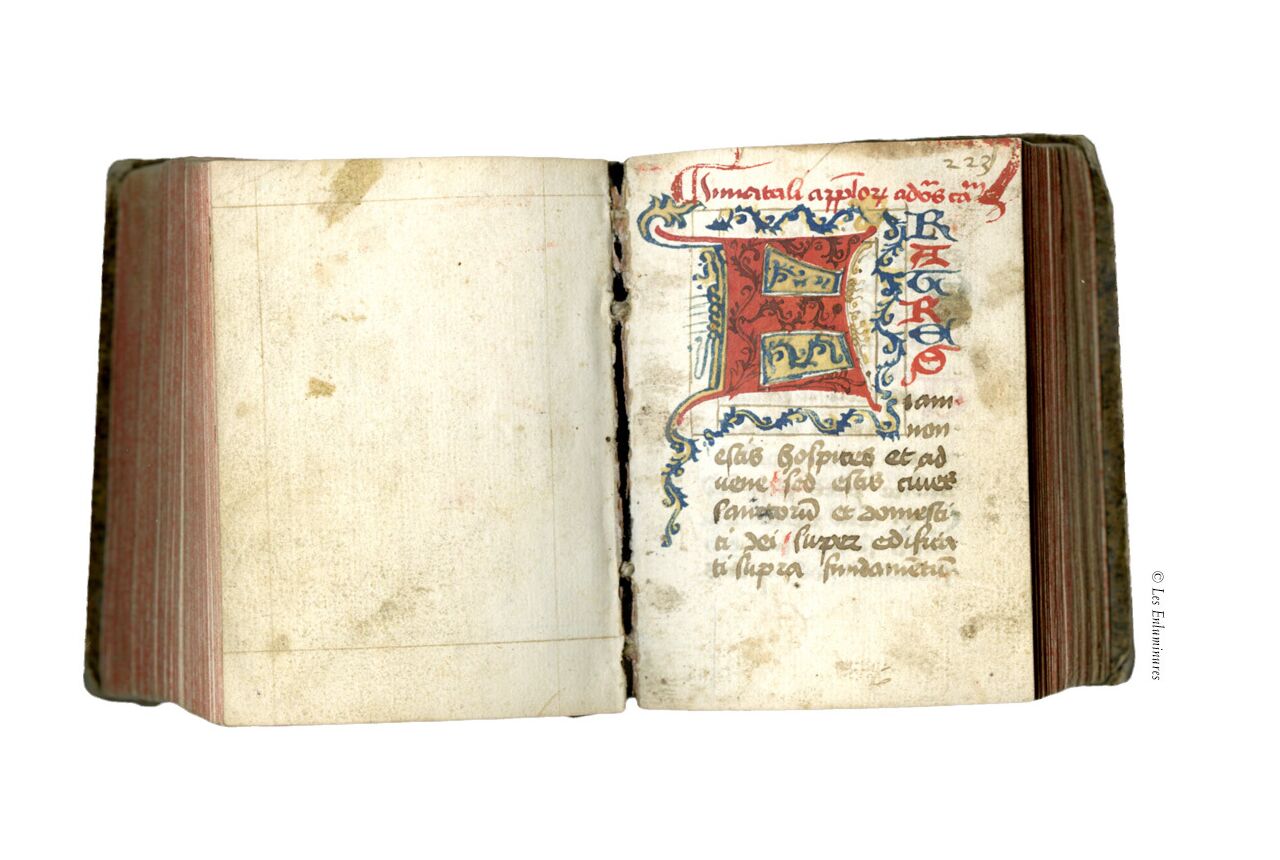 223
In natali apl'oꝝ ad oēs cā
F
R
A
T
R
E
S
iam
non
estis hospites et ad
uene sed estis ciues
sanctorū et domesti
ci dei super edifica
ti supra fundamētū
© Les Enluminures